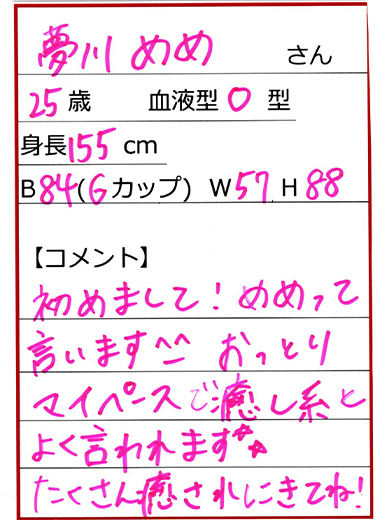 夢川 めめ さん
25歳 血液型 O 型
身長155 cm
B84(Gカップ) W57 H88
【コメント】
初めまして！めめって
言います^^ おっとり
マイペースで癒し系と
よく言われます☆☆
たくさん癒されにきてね！